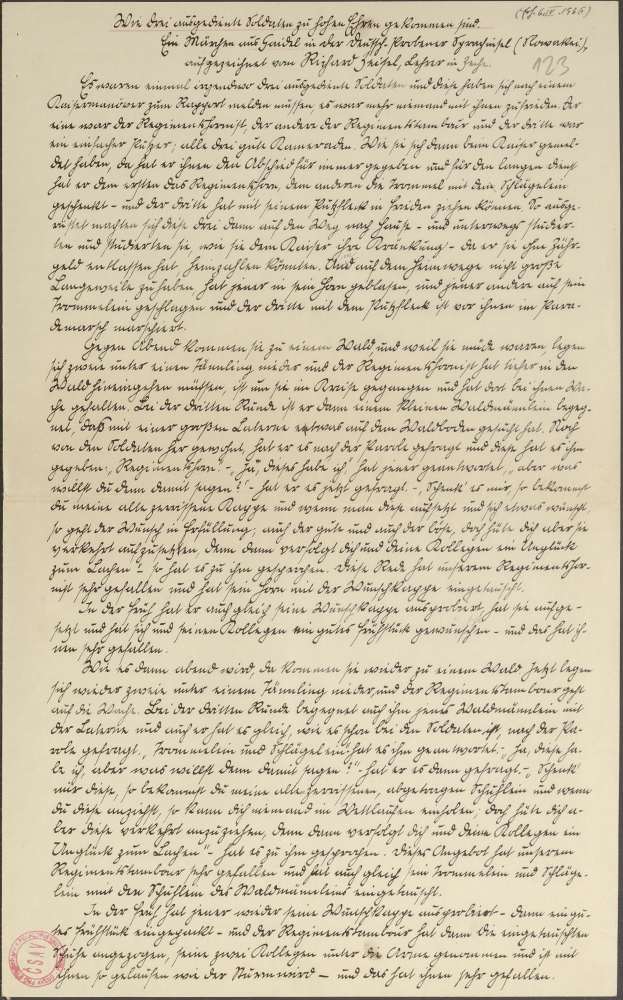 (Pf. 6.IV.1926)
Wie drei ausgediente Soldaten zu hohen Ehren gekommen sind.
Ein Märchen aus Gaidel in der Deutsch-Probener Sprachinsel (Slowakei),
aufgezeichnet von Richard Zeisel, Lehrer in Zeche.
123
Es waren einmal irgendwo drei ausgediente Soldaten und diese haben sich nach einem
Kaisermanöver zum Rapport melden müssen, es war mehr niemand mit ihnen zufrieden. Der
eine war der Regimentshornist, der andere der Regimentstambour und der dritte war
ein einfacher Putzer; alle drei gute Kameraden. Wie sie sich dann beim Kaiser gemel-
det haben, da hat er ihnen den Abschied für immer gegeben und für den langen Dienst
hat er dem ersten das Regimentshorn, dem anderen die Trommel mit dem Schlägelein
geschenkt – und der dritte hat mit seinem Putzfleck in Frieden ziehen können. So ausge-
rüstet machten sich diese drei dann auf den Weg nach Hause – und unterwegs studier-
ten und studierten sie, wie sie dem Kaiser ihre Kränkung – da er sie ohne Zähr-
geld entlassen hat, heimzahlen könnten. Und auf dem Heimwege nicht große
Langeweile zu haben, hat jener in sein Horn geblasen, und jener andere auf sein
Trommelein geschlagen und der dritte mit dem Putzfleck ist vor ihnen im Para-
demarsch marschiert.
Gegen Abend kommen sie zu einem Wald und weil sie müde waren, legen
sich zweie unter einen Tännling nieder und der Regimentshornist hat tiefer in den
Wald hineingehen müssen, ist um sie im Kreise gegangen und hat dort bei ihnen Wa-
che gehalten. Bei der dritten Runde ist er dann einem kleinen Waldmännlein begeg-
net, daß mit einer großen Laterne etwas auf dem Waldboden gesucht hat. Noch
von den Soldaten her gewohnt, hat er es nach der Parole gefragt und diese hat es ihm
gegeben: „Regimentshorn“. – „Ja, dieses habe ich“, hat jener geantwortet, „aber was
willst du denn damit sagen?“ – hat er es jetzt gefragt. – „Schenk' es mir, so bekommst
du meine alte zerrissene Kappe und wenn man diese aufsetzt und sich etwas wünscht,
so geht der Wunsch in Erfüllung; auch der gute und auch der böse, doch hüte dich aber sie
verkehrt aufzusetzen, denn dann verfolgt dich und deine Kollegen ein Unglück
zum Lachen“ – so hat es zu ihm gesprochen. Diese Rede hat unserem Regimentshor-
nist sehr gefallen und hat sein Horn mit der Wunschkappe eingetauscht.
In der Früh hat er auch gleich seine Wunschkappe ausprobiert, hat sie aufge-
setzt und hat sich und seinen Kollegen ein gutes Frühstück gewunschen – und das hat ih-
nen sehr gefallen.
Wie es dann abend wird, da kommen sie wieder zu einem Wald. Jetzt legen
sich wieder zweie unter einem Tännling nieder, und der Regimentstambour geht
auf die Wache. Bei der dritten Runde begegnet auch ihm jenes Waldmännlein mit
der Laterne und auch er hat es gleich, wie es schon bei den Soldaten ist, nach der Pa-
role gefragt. „Trommelein und Schlägelein“ hat es ihm geantwortet. – „Ja, diese ha-
be ich, aber was willst denn damit sagen?“ – hat er es dann gefragt. – „Schenk'
mir diese, so bekommst du meine alte zerrissenen, abgetragen Schühlein und wenn
du diese anziehst, so kann dich niemand im Wettlaufen einholen; doch hüte dich a-
ber diese verkehrt anzuziehen, denn dann verfolgt dich und deine Kollegen ein
Unglück zum Lachen“ – hat es zu ihm gesprochen. Dieses Angebot hat unserem
Regimentstambour sehr gefallen und hat auch gleich sein Trommelein und Schläge-
lein mit den Schühlein des Waldmännleins eingetauscht.
In der Früh hat jener wieder seine Wunschkappe ausprobiert – dann ein gu-
tes Frühstück eingepackt – und der Regimentstambour hat dann die eingetauschten
Schuhe angezogen, seine zwei Kollegen unter die Arme genommen und ist mit
ihnen so gelaufen wie der Sturmwind – und das hat ihnen sehr gefallen.
ČSAV